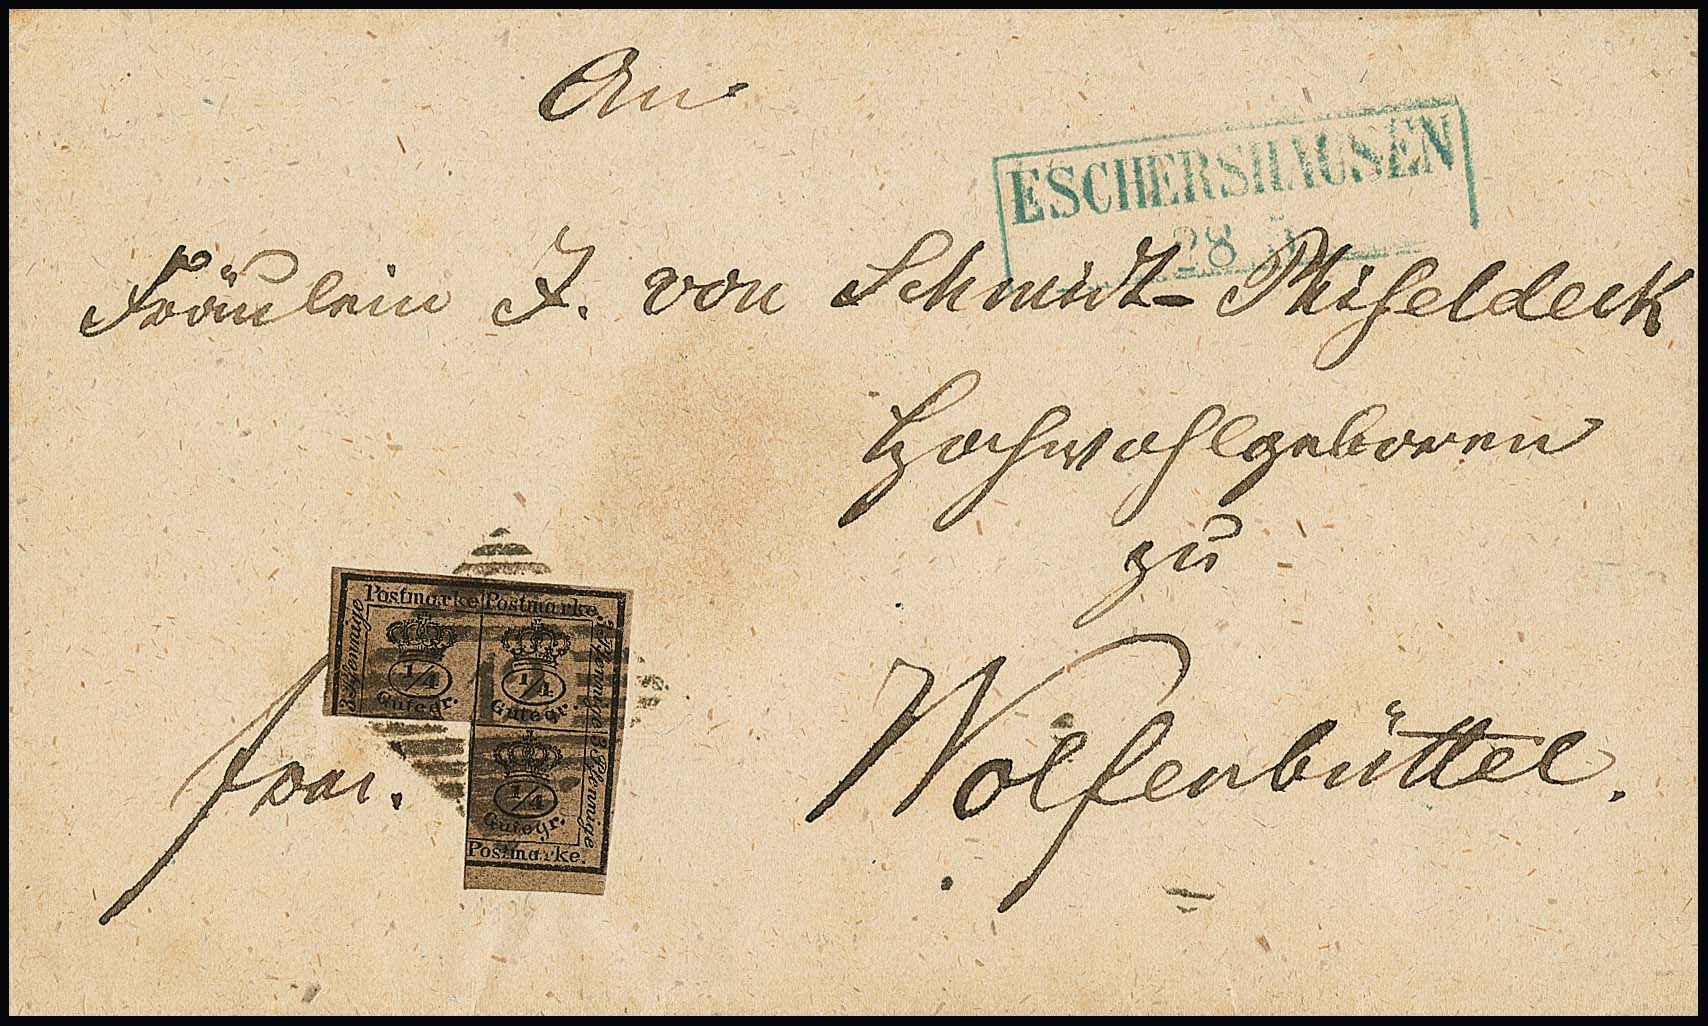 An
ESCHERSHAUSEN
28 5
Fräulein J. von Schmidt-Phiseldeck
Hochwohlgeboren
zu
Wolfenbüttel.
fran.
Postmarke Postmarke.
3 Pfennige
3 Pfennige 3 Pfennige
1/4 Gutegr.
1/4 Gutegr.
1/4 Gutegr.
Postmarke.